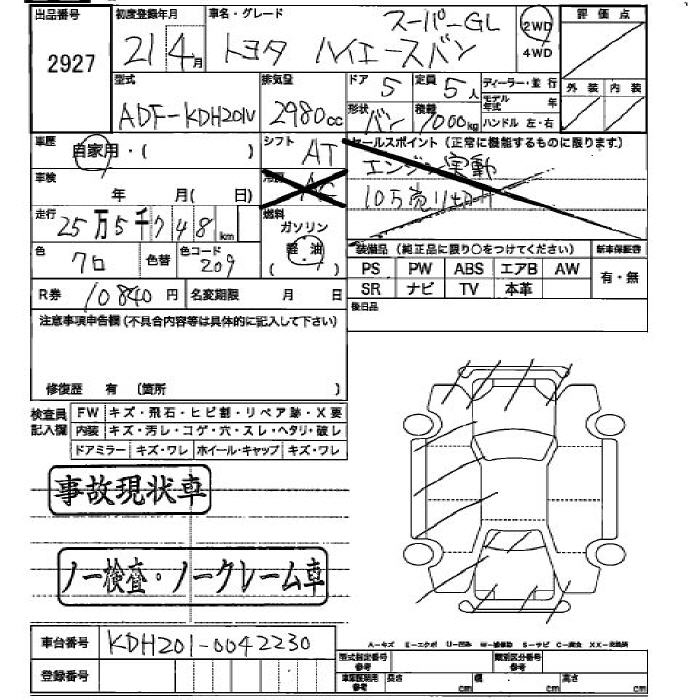 出品番号 初度登録年月 車名・グレード スーパーGL 2WD 評価点
2927 21 4月 トヨタ ハイエースバン 4WD
型式 排気量 ドア 5 定員 5人 ディーラー・並行 外装 内装
ADF-KDH201V 2980cc 形状 バン 積載 1000kg モデル年式 年
ハンドル 左・右
車歴 自家用・( ) シフト AT セールスポイント (正常に機能するものに限ります)
エンジン実動
車検 年 月( 日) 冷房 AC 105売り切り
走行 25万5千748km 燃料 ガソリン
軽油
色 クロ 色替 色コード 209 装備品 (純正品に限り○をつけてください) 新車保証書
PS PW ABS エアB AW 有・無
R券 10840円 名変期限 月 日 SR ナビ TV 本革
後日品
注意事項申告欄 (不具合内容等は具体的に記入して下さい)
修復歴 有 (箇所 )
検査員記入欄 FW キズ・飛石・ヒビ割・リペア跡・X要
内装 キズ・汚レ・コゲ・穴・スレ・ヘタリ・破レ
ドアミラー キズ・ワレ ホイール・キャップ キズ・ワレ
事故現状車
ノー検査・ノークレーム車
車台番号 KDH201-0042230
登録番号
A-キズ E-エクボ U-凹み W-補修跡 S-サビ C-腐食 XX-交換済
型式指定番号 参考 類別区分番号 参考
車庫証明用 参考 長さ cm 幅 cm 高さ cm